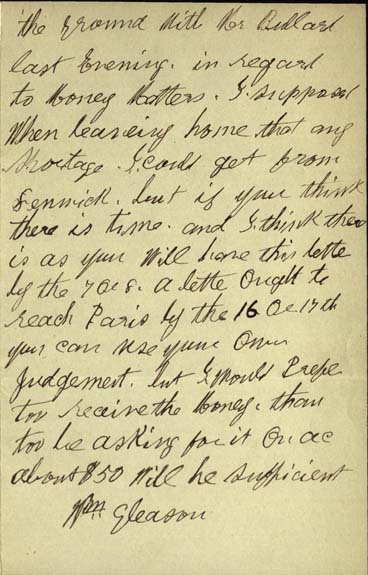 the ground with Mr Bullard
last Evening. in regard
to Money Matters. I supposed
When leaveing home that any
Shortage I could get from
Fennick. but if you think
there is time. and I think there
is as you Will have this lette
by the 7 or 8. a lette Ought to
reach Paris by the 16 Or 17th
your can use your Own
Judgement. but I would Prefe
too receive the Money. than
too be asking for it On ac
about $50 Will be sufficient
Wm Gleason